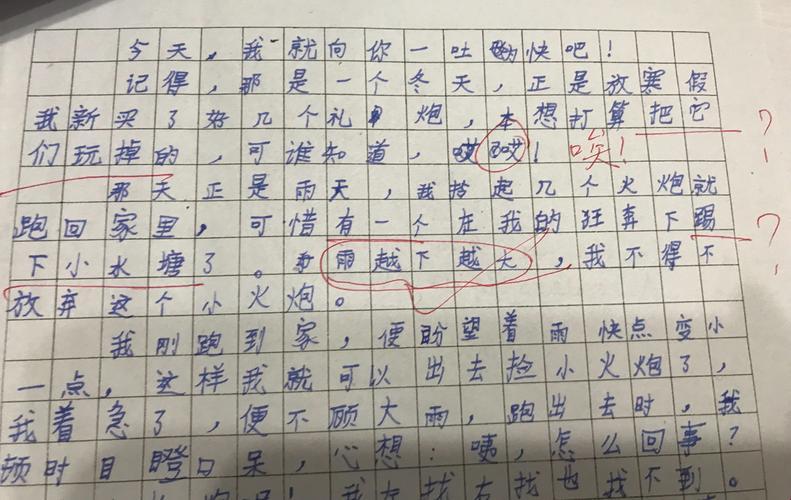 今天，我就向你一吐快吧！
记得，那是一个冬天，正是放寒假
我新买了好几个礼炮，本想打算把它
们玩掉的，可谁知道，哎！唉！
那天正是雨天，我拾起几个火炮就
跑回家里，可惜有一个在我的狂奔下踢
下小水塘了。雨越下越大，我不得不
放弃这个小火炮。
我刚跑到家，便盼望着雨快点变小
一点，这样我就可以出去捡小火炮了，
我着急了，便不顾大雨，跑出去时，我
顿时目瞪口呆，心想：咦，怎么回事？
我左找右找也找不到。